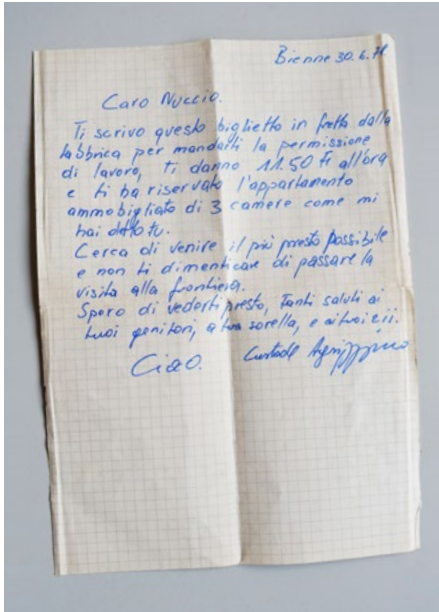 Bienne 30.6.71.
Caro Nuccio.
Ti scrivo questo biglietto in fretta dalla
fabbrica per mandarti la permissione
di lavoro, ti danno 11.50 Fr all'ora
e ti ha riservato l'appartamento
ammobigliato di 3 camere come mi
hai detto tu.
Cerca di venire il più presto possibile
e non ti dimenticare di passare la
visita alla frontiera.
Spero di vederti presto, Tanti saluti ai
tuoi genitori, a tua sorella, e ai tuoi zii.
Ciao.